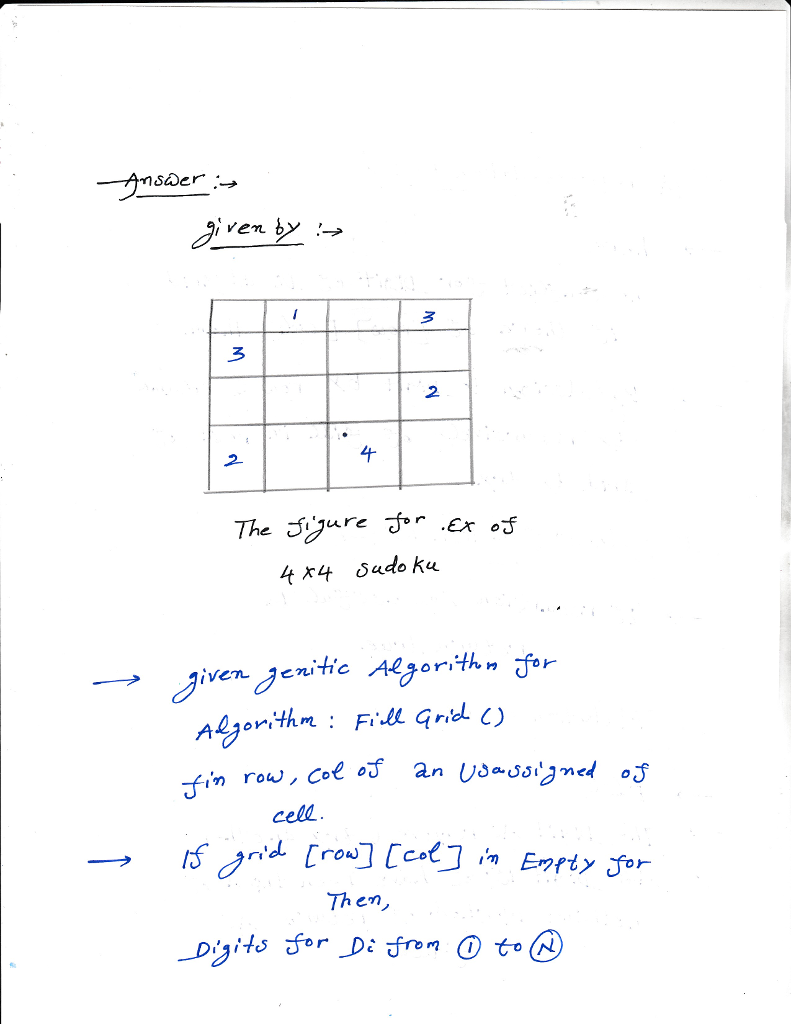 Answer :→
given by :→
1 3
3
2
2 4
The figure for .Ex of
4x4 sudoku
→ given genitic Algorithm for
Algorithm : Fill Grid ()
fin row, col of an Usassigned of
cell.
→ If grid [row] [col] in Empty for
Then,
Digits for Di from ① to Ⓝ